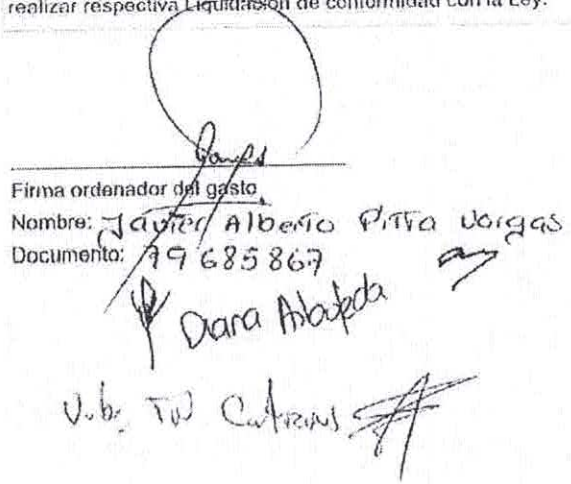 realizar respectiva Liquidación de conformidad con la Ley.
Firma ordenador del gasto
Nombre: Javier Alberto Pitta Vargas
Documento: 79 685 867
Diana